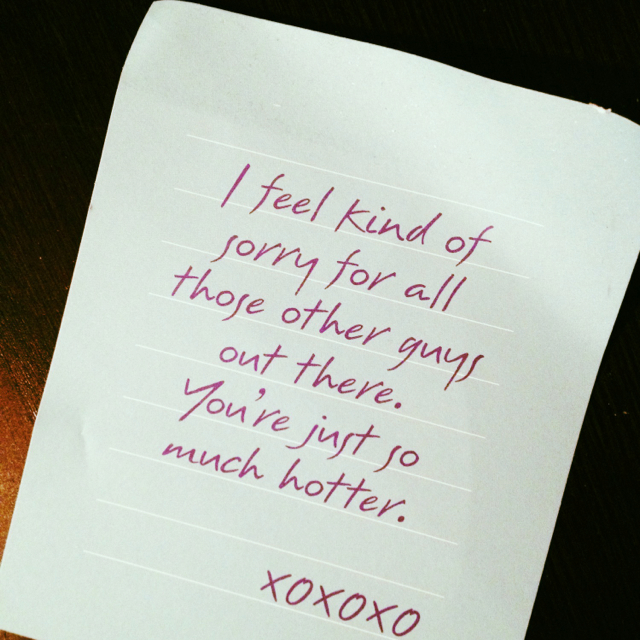 I feel kind of
sorry for all
those other guys
out there.
You're just so
much hotter.
xoxoxo